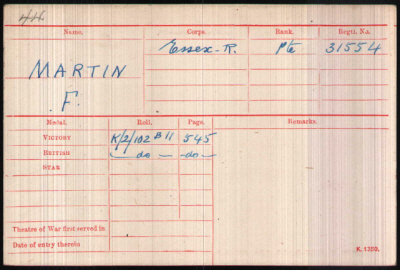 Name. Corps. Rank. Regtl. No.
MARTIN Essex. R. Pte 31554
F.
Medal. Roll. Page. Remarks.
VICTORY K/2/102 B11 545
BRITISH do do
STAR
Theatre of War first served in
Date of entry therein
K. 1380.